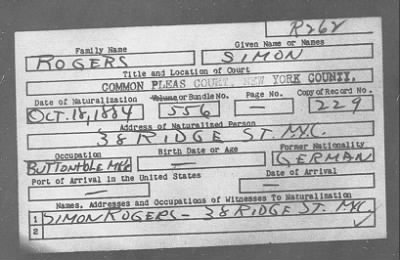 R262
Family Name Given Name or Names
ROGERS SIMON
Title and Location of Court
COMMON PLEAS COURT, NEW YORK COUNTY.
Date of Naturalization Volume or Bundle No. Page No. Copy of Record No.
OCT. 18, 1884 556 — 229
Address of Naturalized Person
38 RIDGE ST. N.Y.C.
Occupation Birth Date or Age Former Nationality
BUTTONHOLE MKR — GERMAN
Port of Arrival in the United States Date of Arrival
— —
Names, Addresses and Occupations of Witnesses To Naturalization
1 SIMON ROGERS - 38 RIDGE ST. N.Y.C.
2